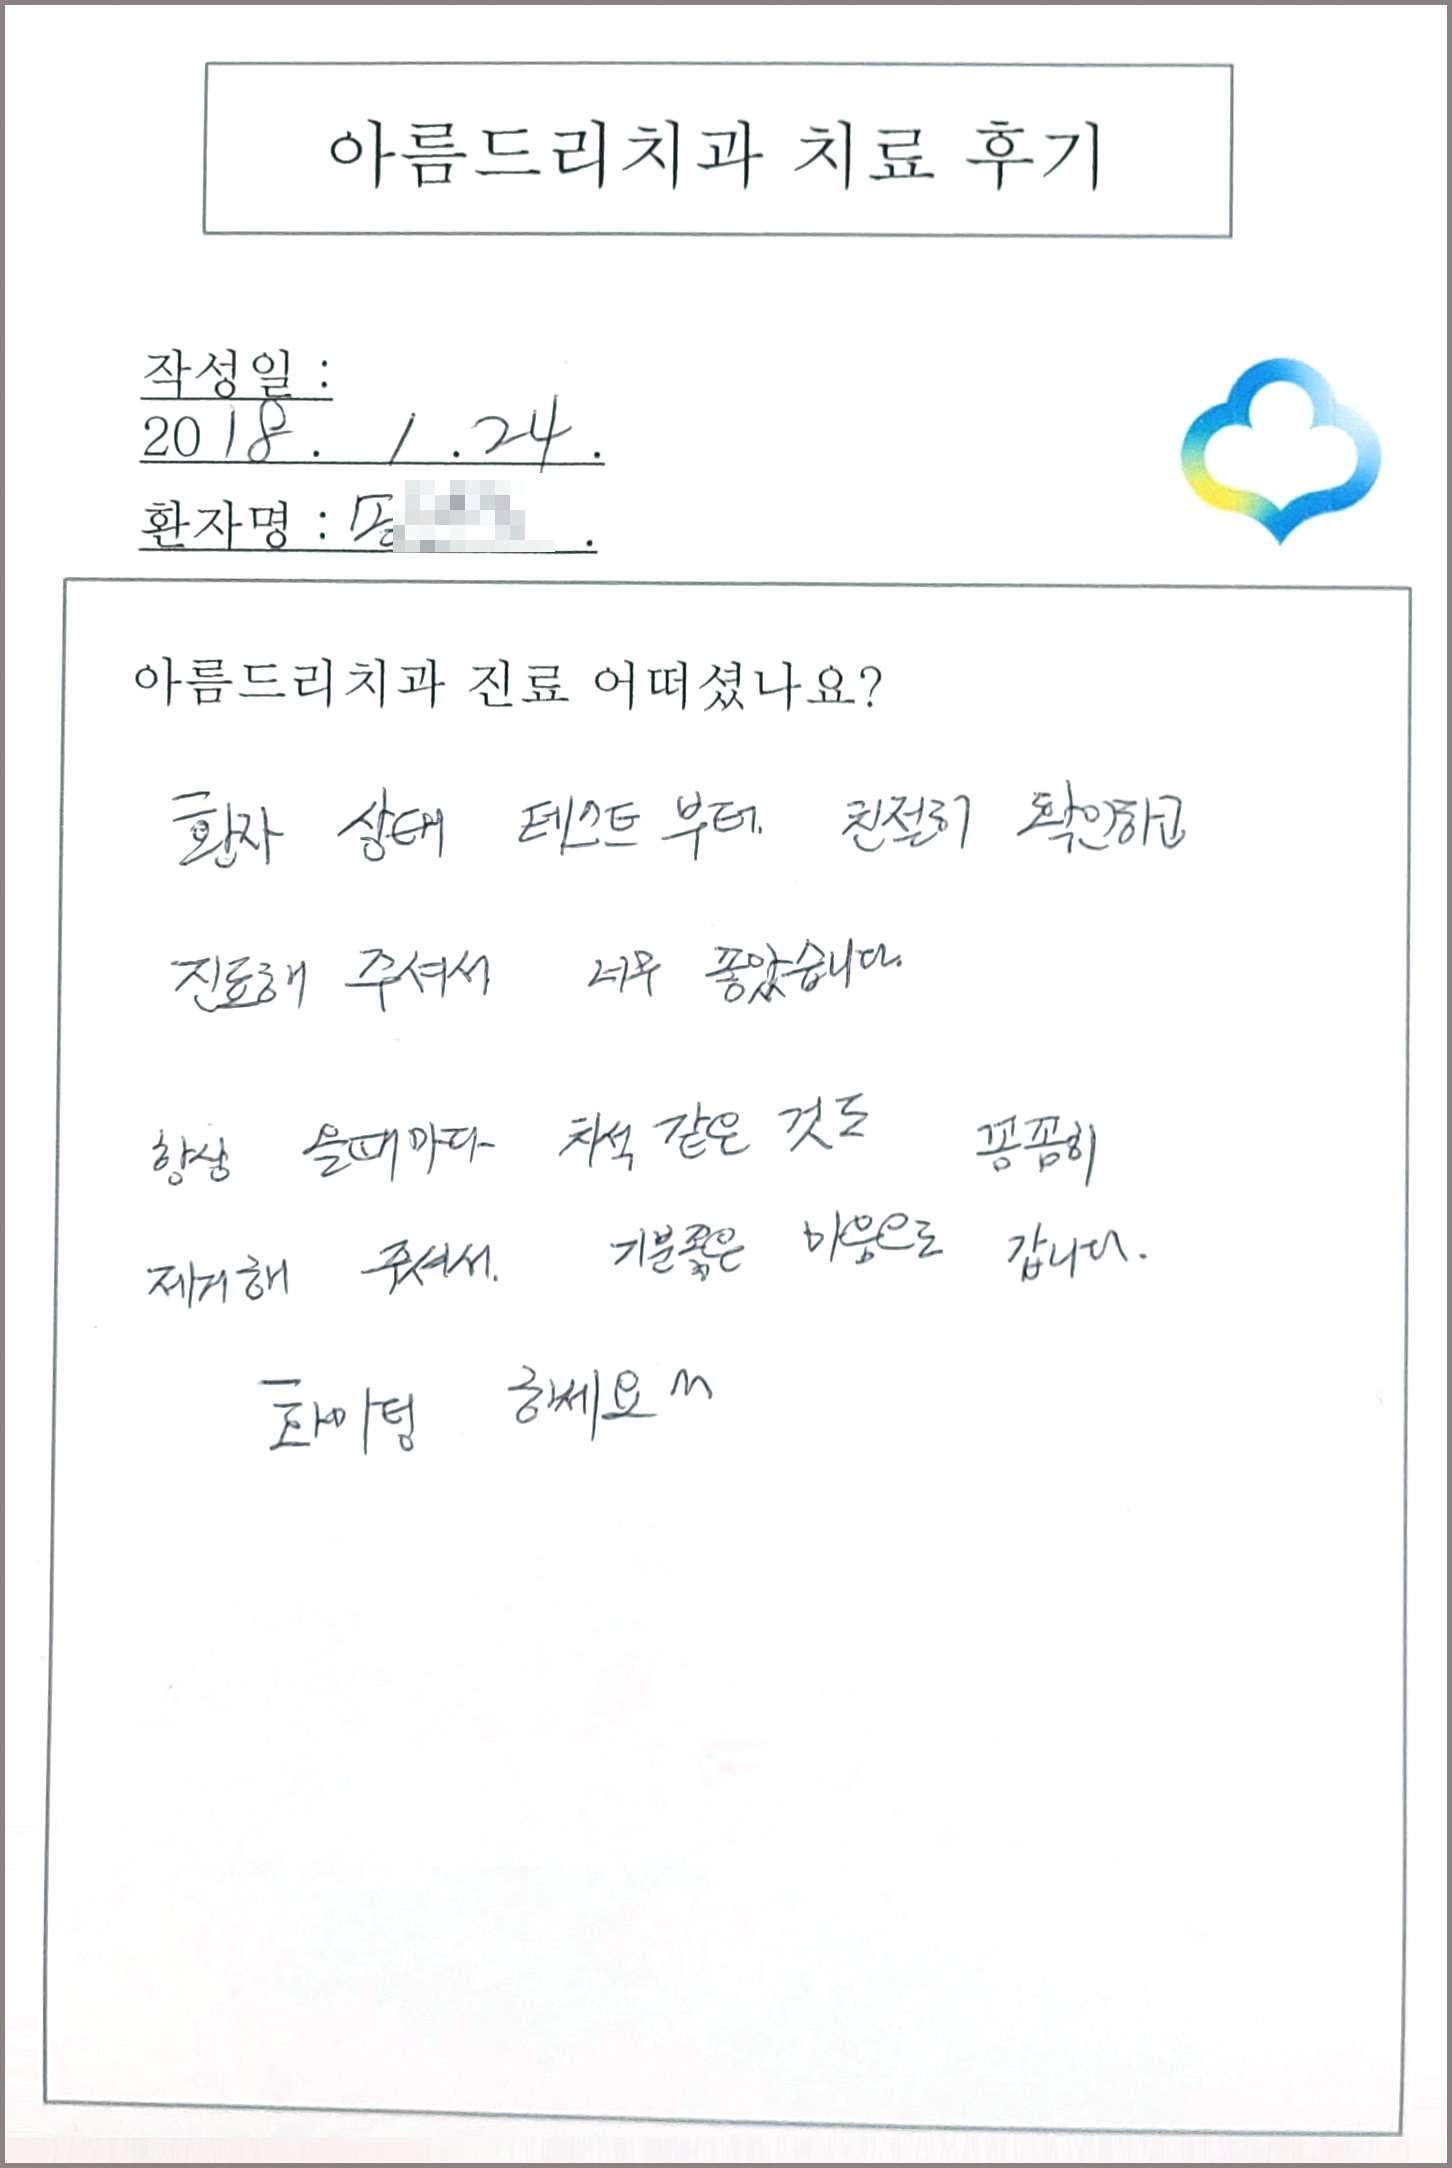 아름드리치과 치료 후기
작성일 :
2018. 1. 24.
환자명 : .
아름드리치과 진료 어떠셨나요?
환자 상태 테스트부터. 친절히 확인하고
진료해 주셔서 너무 좋았습니다.
항상 올때마다 치석 같은 것도 꼼꼼히
제거해 주셔서. 기분좋은 마음으로 갑니다.
화이팅 하세요^^